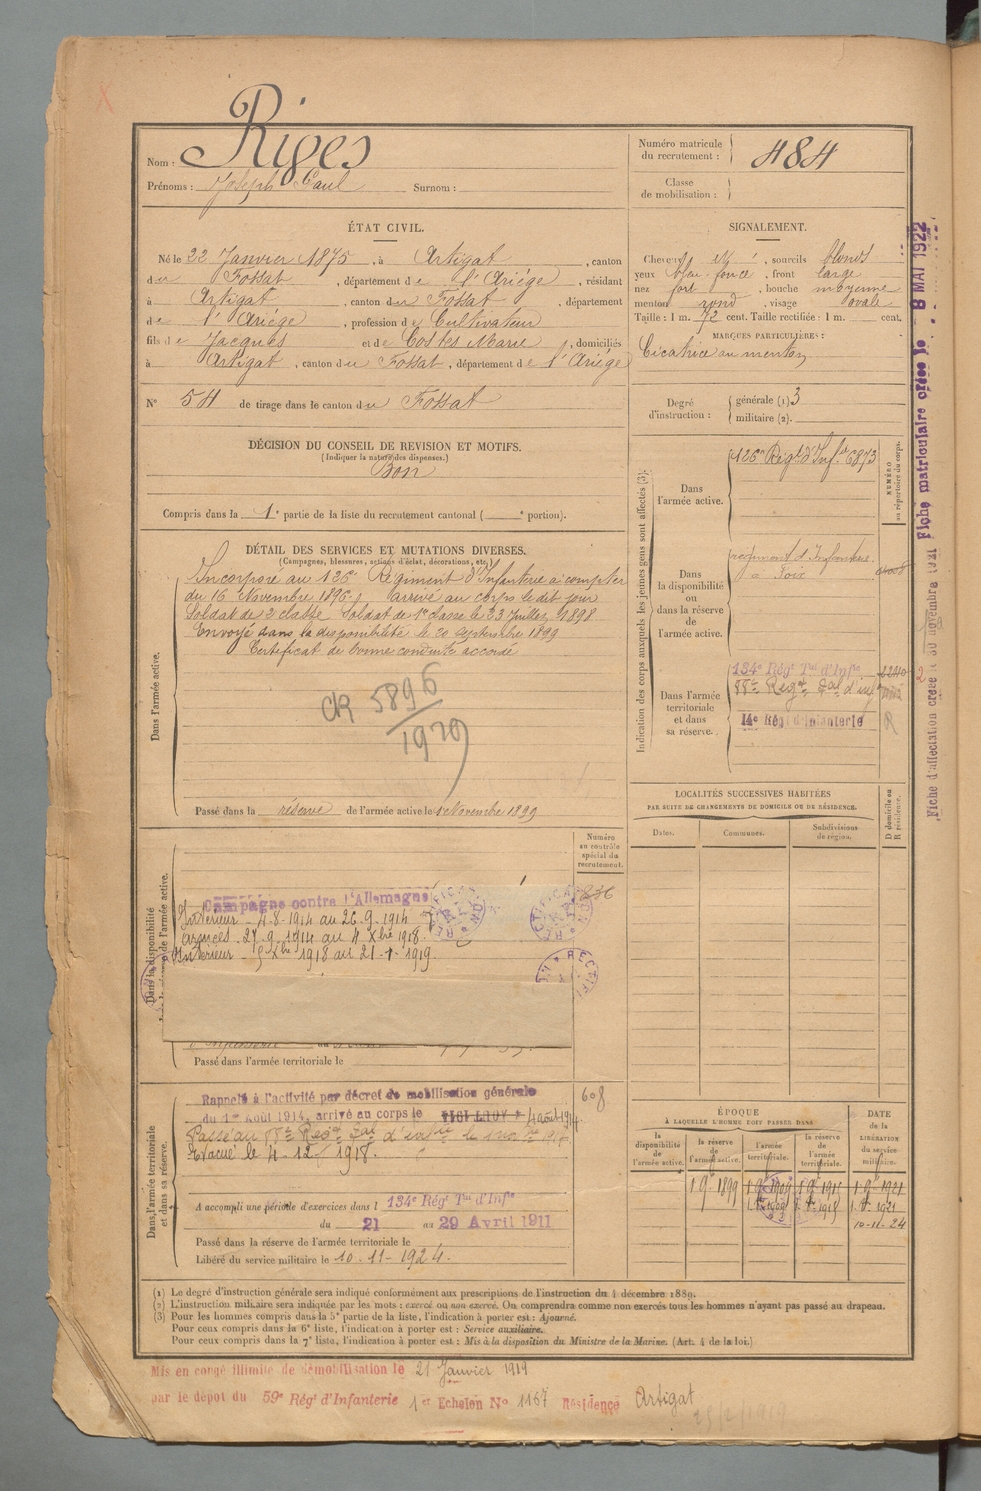 Riges
Nom :
Prénoms : Joseph Paul Surnom :
Numéro matricule du recrutement : 484
Classe de mobilisation :
ÉTAT CIVIL.
Né le 22 Janvier 1875, à Artigat, canton
du Fossat, département de l'Ariége, résidant
à Artigat, canton du Fossat, département
de l'Ariége, profession de Cultivateur
fils de Jacques et de Costes Marie, domiciliés
à Artigat, canton du Fossat, département de l'Ariége
N° 54 de tirage dans le canton du Fossat
SIGNALEMENT.
Cheveux et , sourcils blonds
yeux bleu foncé, front large
nez fort, bouche moyenne
menton rond, visage ovale
Taille : 1 m. 72 cent. Taille rectifiée : 1 m. cent.
MARQUES PARTICULIÈRES :
Cicatrice au menton
Degré d'instruction : générale (1) 3
militaire (2).
DÉCISION DU CONSEIL DE REVISION ET MOTIFS.
(Indiquer la nature des dispenses.)
Bon
Compris dans la 1e partie de la liste du recrutement cantonal ( e portion).
DÉTAIL DES SERVICES ET MUTATIONS DIVERSES.
(Campagnes, blessures, actions d'éclat, décorations, etc.)
Dans l'armée active.
Incorporé au 126e Régiment d'Infanterie à compter
du 16 Novembre 1896. arrivé au corps le dit jour
Soldat de 2e classe Soldat de 1e classe le 23 Juillet 1898
Envoyé dans la disponibilité le 20 septembre 1899
Certificat de bonne conduite accordé
CR 5896
1929
Passé dans la réserve de l'armée active le 1 Novembre 1899
Indication des corps auxquels les jeunes gens sont affectés (3).
NUMÉRO au répertoire du corps.
Dans l'armée active.
126e Régt d'Infie 6873
Dans la disponibilité ou dans la réserve de l'armée active.
régiment d'Infanterie
à Foix
Dans l'armée territoriale et dans sa réserve.
134e Régt Tal d'Infie
Régt Tal d'inf
14e Régt d'Infanterie
R
LOCALITÉS SUCCESSIVES HABITÉES
PAR SUITE DE CHANGEMENTS DE DOMICILE OU DE RÉSIDENCE.
D domicile ou R résidence.
Dates.
Communes.
Subdivisions de région.
Numéro au contrôle spécial du recrutement.
Dans la disponibilité
de l'armée active.
Campagne contre l'Allemagne
Intérieur - 4.8.1914 au 26.9.1914
armées - 27.9.1914 au 4 Xbre 1918.
Intérieur - 5 Xbre 1918 au 21-1-1919.
RECTIFI
RECTIFI
Passé dans l'armée territoriale le
608
Dans l'armée territoriale et dans sa réserve.
Rappelé à l'activité par décret de mobilisation générale
du 1er Août 1914, arrivé au corps le 4 août 1914.
Passé au Régt Tal d'infrie le
Evacué le 4-12-1918.
A accompli une période d'exercices dans l 134e Régt Tal d'Infie
du 21 au 29 Avril 1911
Passé dans la réserve de l'armée territoriale le
Libéré du service militaire le 10-11-1924.
ÉPOQUE
À LAQUELLE L'HOMME DOIT PASSER DANS
la disponibilité de l'armée active.
la réserve de l'armée active.
l'armée territoriale.
la réserve de l'armée territoriale.
DATE de la LIBÉRATION du service militaire.
1 9e 1899
10-11-24
(1) Le degré d'instruction générale sera indiqué conformément aux prescriptions de l'instruction du 4 décembre 1889.
(2) L'instruction militaire sera indiquée par les mots : exercé ou non exercé. On comprendra comme non exercés tous les hommes n'ayant pas passé au drapeau.
(3) Pour les hommes compris dans la 5e partie de la liste, l'indication à porter est : Ajourné.
Pour ceux compris dans la 6e liste, l'indication à porter est : Service auxiliaire.
Pour ceux compris dans la 7e liste, l'indication à porter est : Mis à la disposition du Ministre de la Marine. (Art. 4 de la loi.)
Mis en congé illimité de démobilisation le 21 Janvier 1919
par le dépôt du 59e Régt d'Infanterie 1er Echelon No 1167 Résidence Artigat
25/2/1919
Fiche matriculaire créée le 8 MAI 1922
Fiche d'affectation créée le 30 novembre 1921